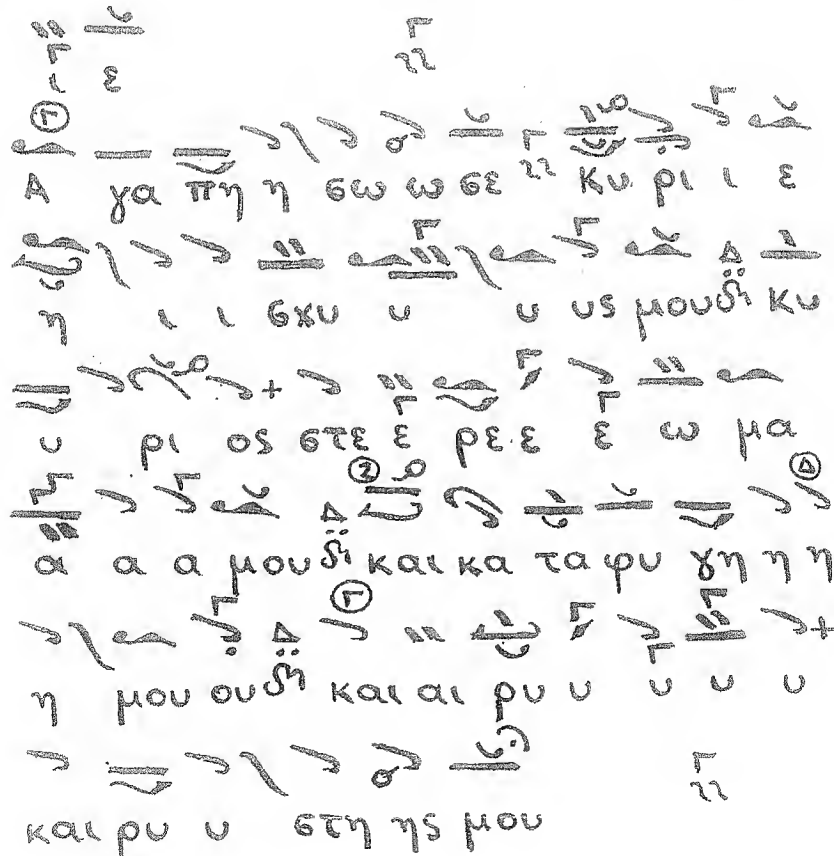 ι ε
Α γα πη η σω ω σε Κυ ρι ι ε
η ι ι σχυ υ υ υς μου Κυ
υ ρι ος στε ε ρε ε ε ω μα
α α α μου και κα τα φυ γη η η
η μου ου και αι ρυ υ υ υ υ
και ρυ υ στη ης μου